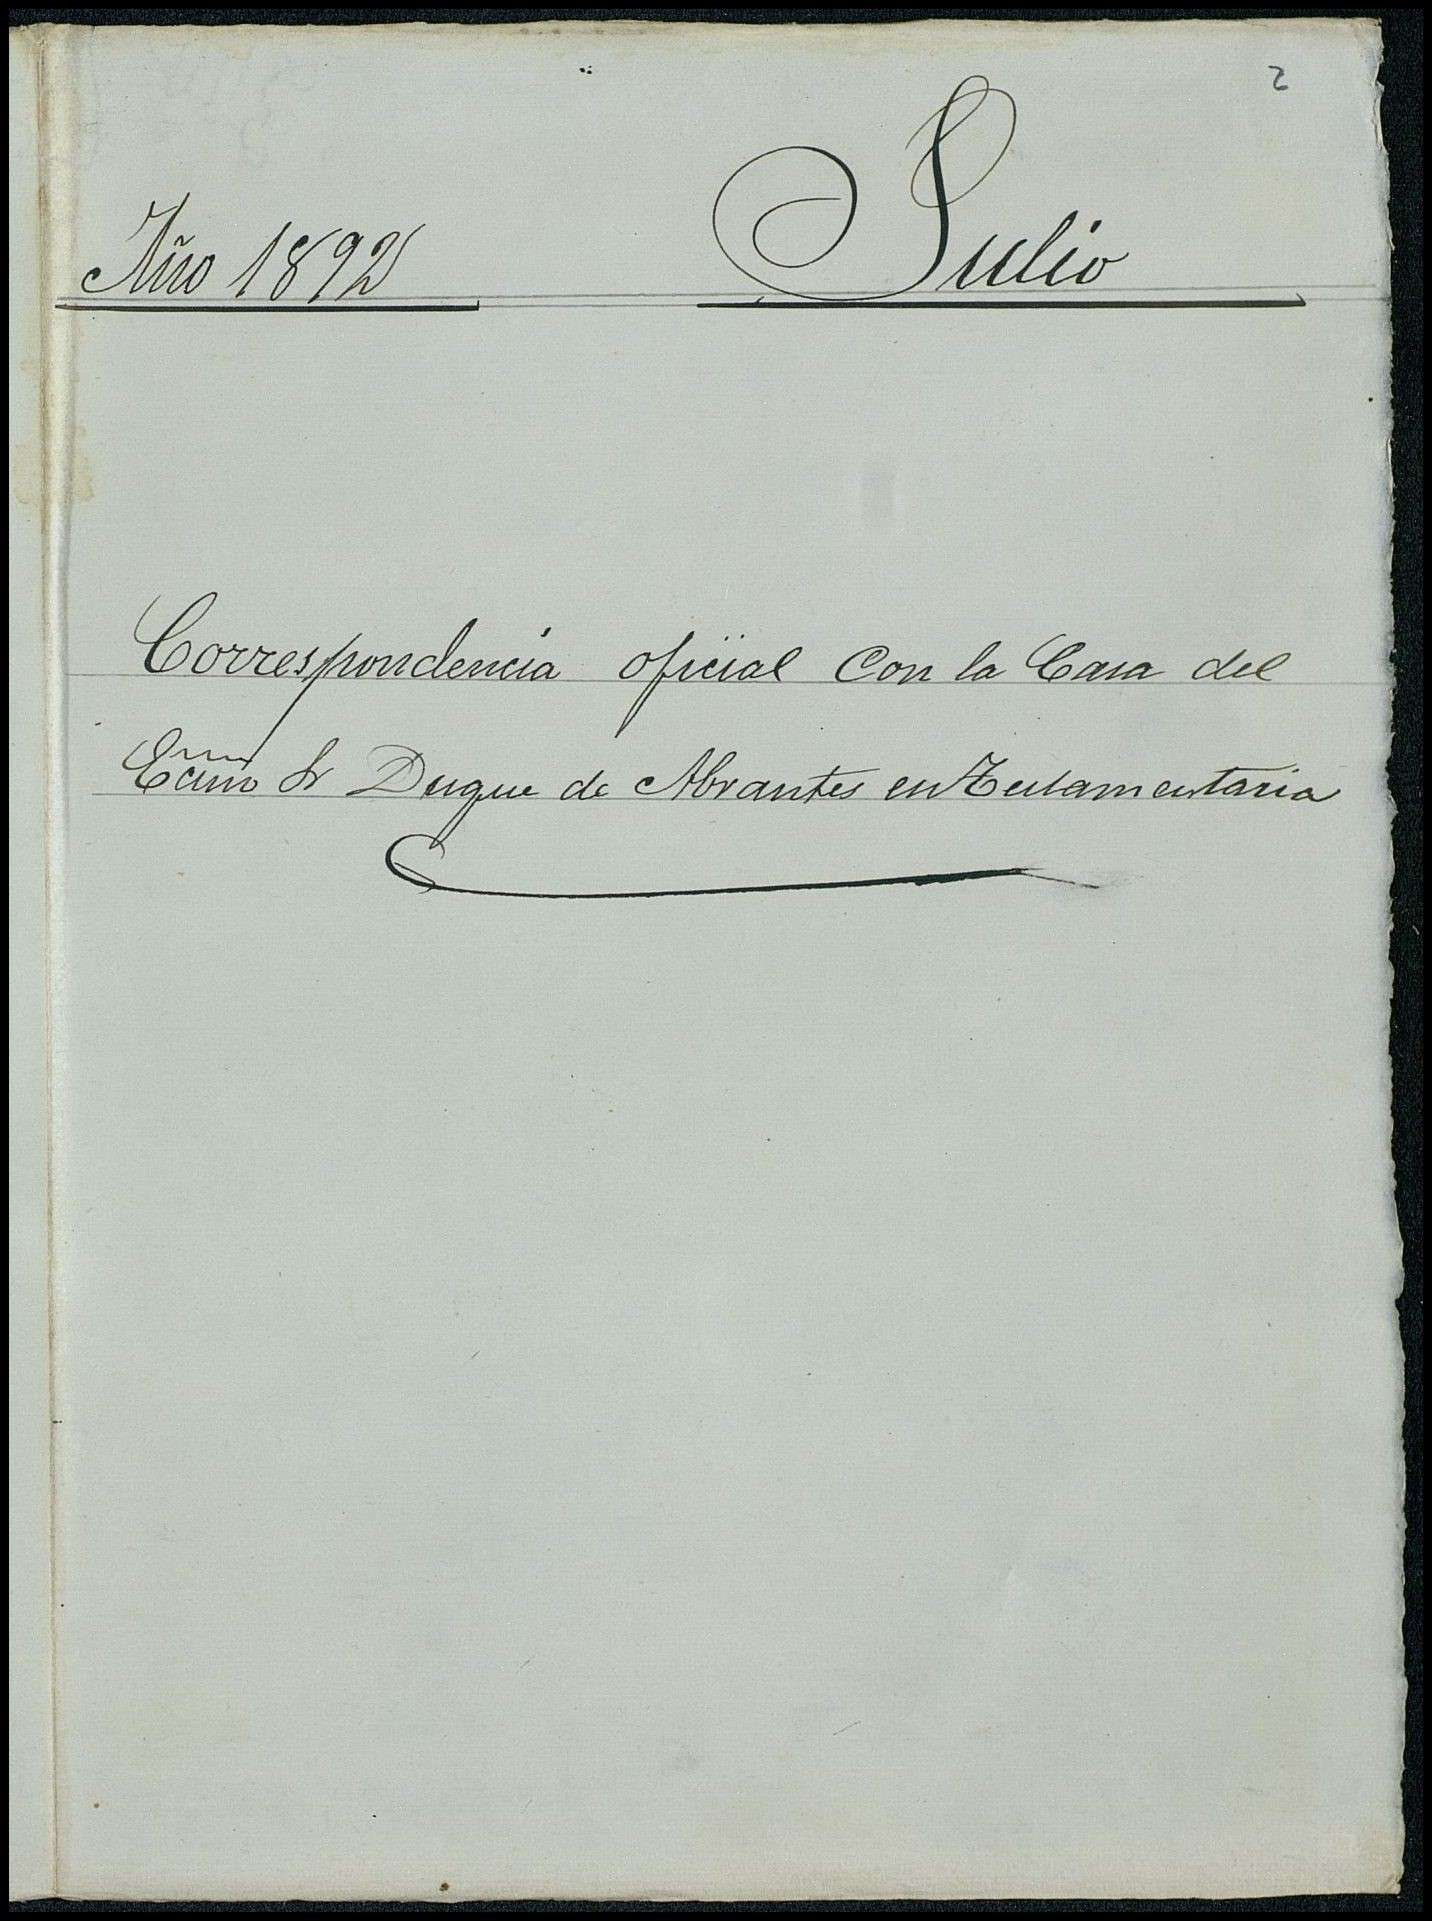 2
Año 1892 Julio
Correspondencia oficial con la Casa del
Ecmo Sr Duque de Abrantes en Testamentaria